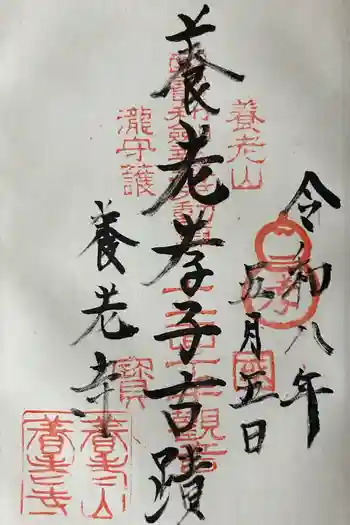 令和八年
五月五日
養老山
養老孝子古蹟
瀧守護
養老寺
寳
養老山
養老寺